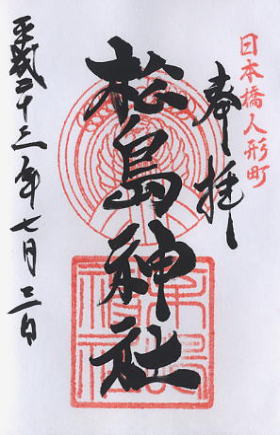 日本橋人形町
奉拝
松島神社
平成二十三年七月三日